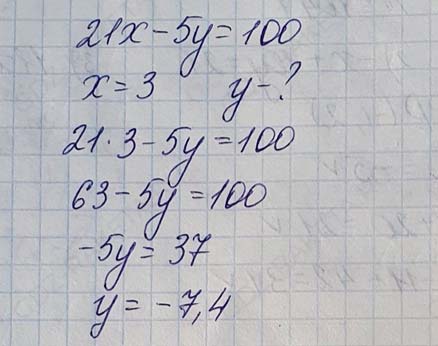 21x-5y=100
x=3 y-?
21·3-5y=100
63-5y=100
-5y=37
y=-7,4